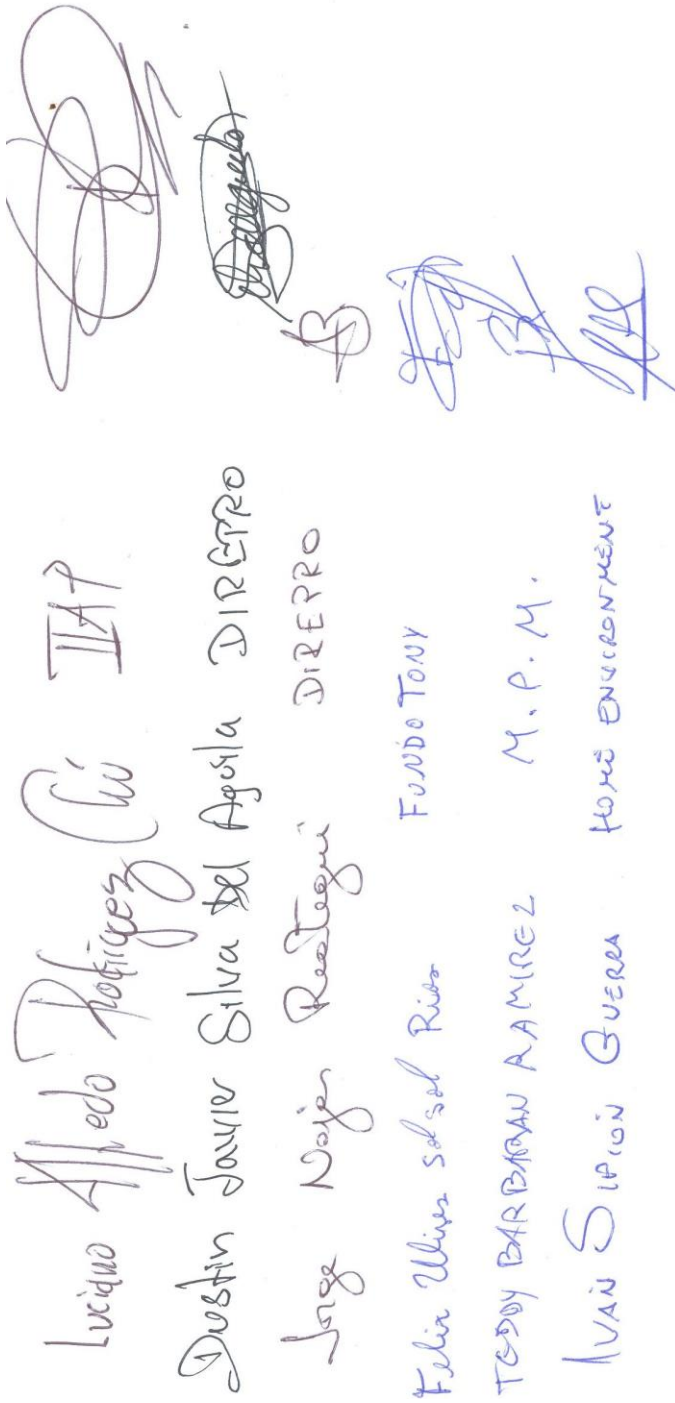 Luciano Alfredo Rodriguez Chú IIAP
Dustin Javier Silva Del Aguila DIREPRO
Jorge Najar Reategui DIREPRO
Felix Ulises Sol Sol Rios FUNDO TONY
TEDDY BARBARAN RAMIREZ M.P.M.
IVAN SIPIÓN GUERRA HOME ENVIRONMENT